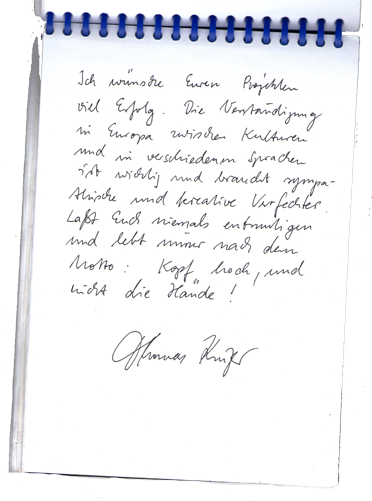 Ich wünsche Euren Projekten
viel Erfolg. Die Verständigung
in Europa zwischen Kulturen
und in verschiedenen Sprachen
ist wichtig und braucht sympa-
thische und kreative Verfechter.
Laßt Euch niemals entmutigen
und lebt immer nach dem
Motto: Kopf hoch, und
nicht die Hände!
Thomas